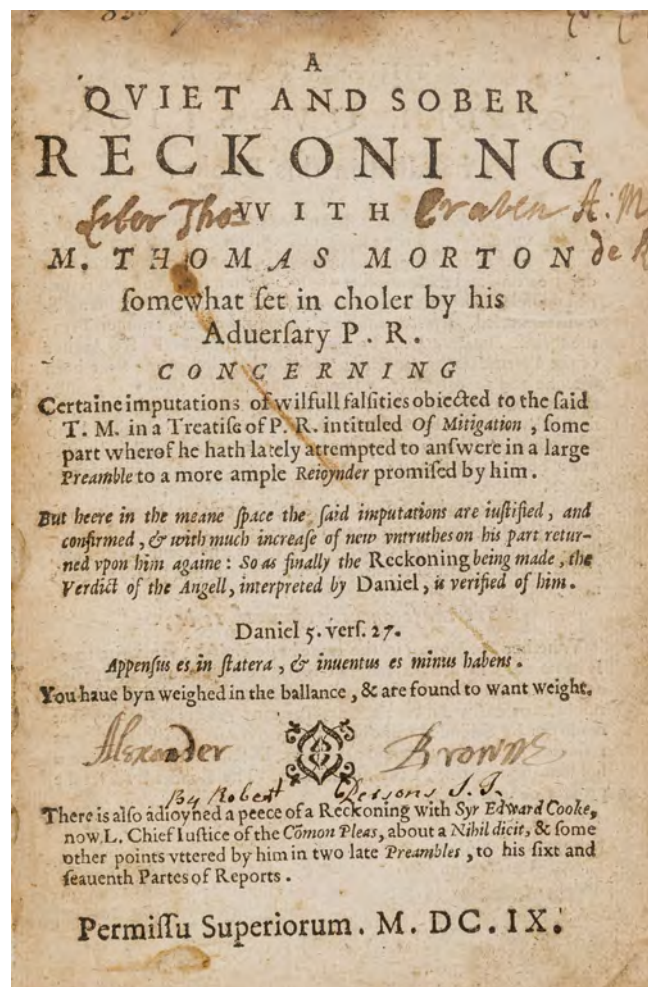 A
QVIET AND SOBER
RECKONING
Liber Tho. VVITH Craven A: M
M. THOMAS MORTON de
ſomewhat ſet in choler by his
Aduerſary P. R.
CONCERNING
Certaine imputations of wilfull falſities obiected to the ſaid
T. M. in a Treatiſe of P. R. intituled Of Mitigation, ſome
part wherof he hath lately attempted to anſwere in a large
Preamble to a more ample Reioynder promiſed by him.
But heere in the meane ſpace the ſaid imputations are iuſtified, and
confirmed, & with much increaſe of new vntruthes on his part retur-
ned vpon him againe: So as finally the Reckoning being made, the
Verdict of the Angell, interpreted by Daniel, is verified of him.
Daniel 5. verſ. 27.
Appenſus es in ſtatera, & inuentus es minus habens.
You haue byn weighed in the ballance, & are found to want weight.
Alexander Browne
By Robert Persons S. J.
There is alſo adioyned a peece of a Reckoning with Syr Edward Cooke,
now L. Chief Iuſtice of the Cõmon Pleas, about a Nihil dicit, & ſome
other points vttered by him in two late Preambles, to his ſixt and
ſeauenth Partes of Reports.
Permiſſu Superiorum. M. DC. IX.